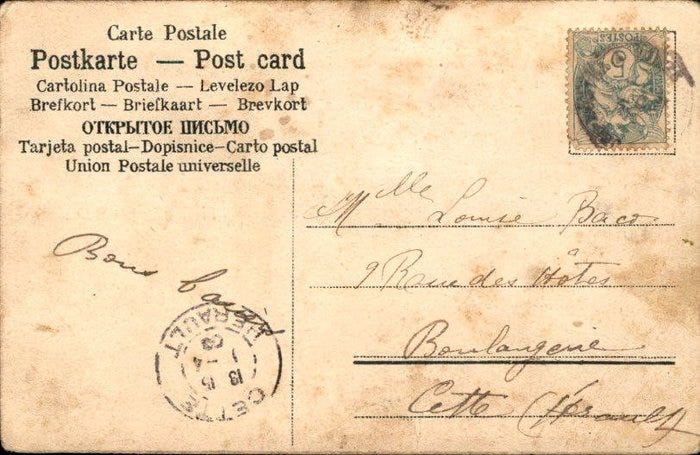 Carte Postale
Postkarte — Post card
Cartolina Postale — Levelezo Lap
Brefkort — Briefkaart — Brevkort
ОТКРЫТОЕ ПИСЬМО
Tarjeta postal—Dopisnice—Carto postal
Union Postale universelle
POSTES
5
Mlle Louise Baco
9 Rue des Hôtes
Boulangerie
Cette (Hérault)
Bons
CETTE
HERAULT